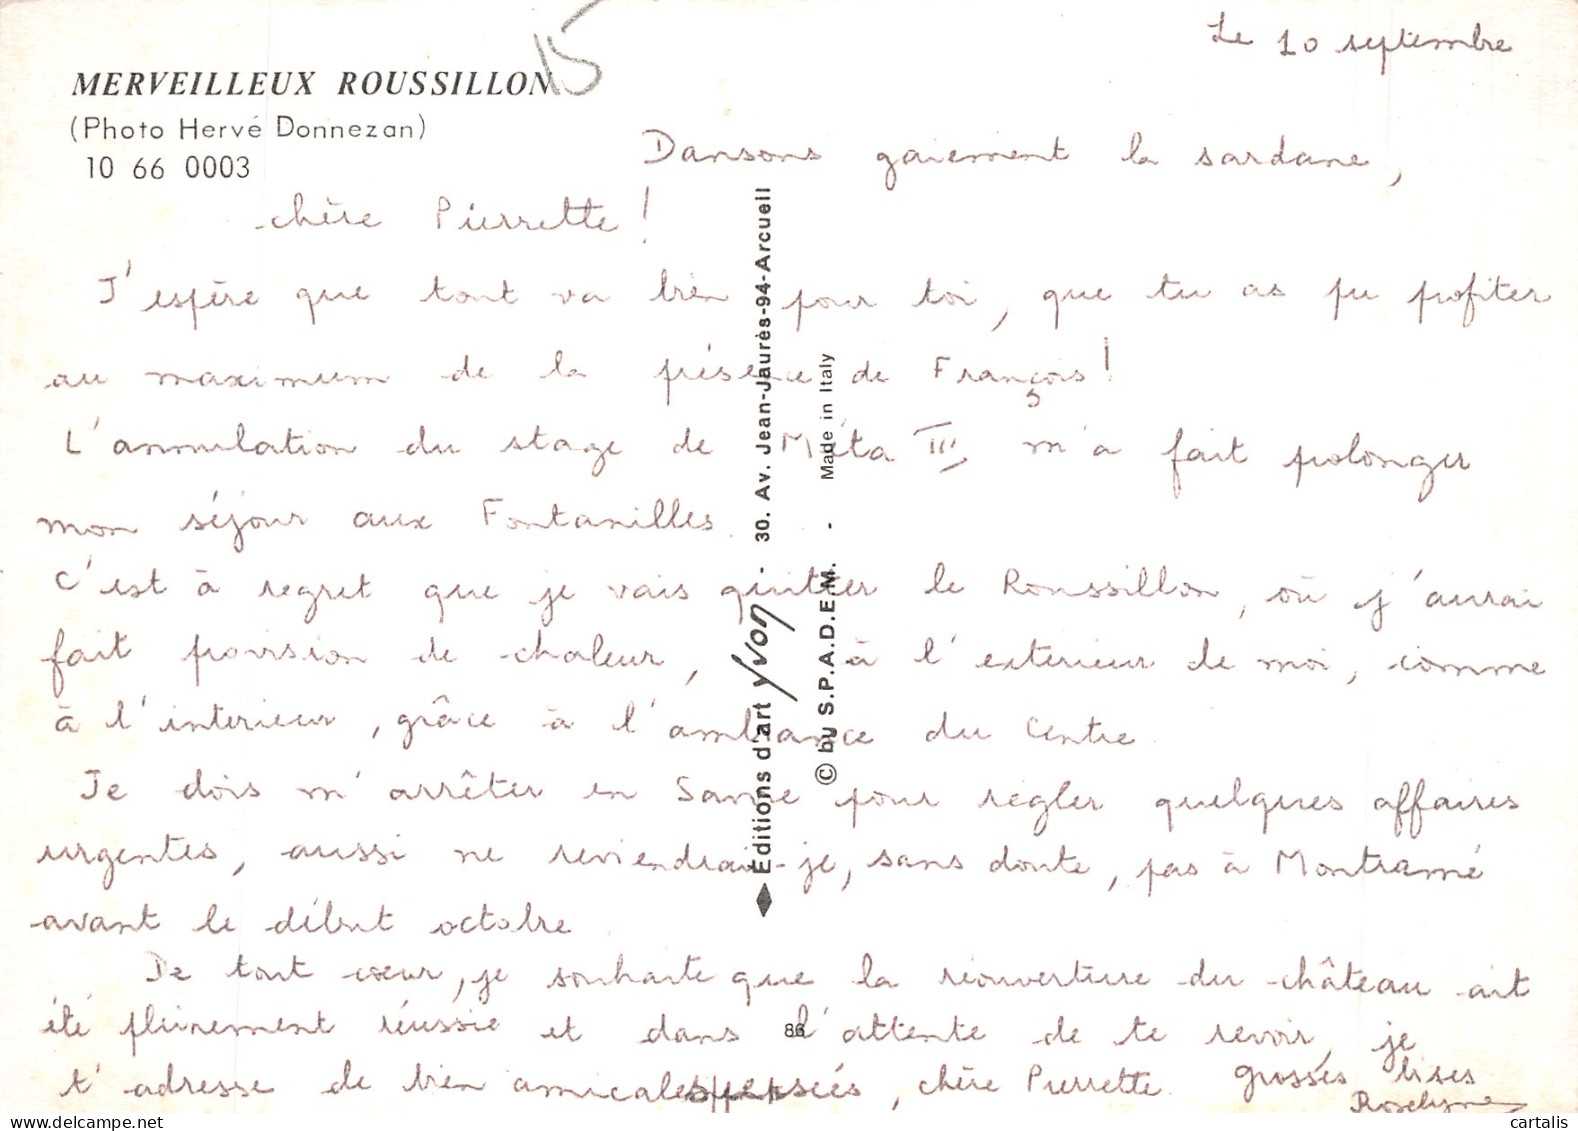 15
Le 10 septembre
MERVEILLEUX ROUSSILLON
(Photo Hervé Donnezan)
10 66 0003
Dansons gaiement la sardane,
chère Pierrette !
J'espère que tout va bien pour toi, que tu as pu profiter
au maximum de la présence de François !
L'annulation du stage de Méta III, m'a fait prolonger
mon séjour aux Fontanilles.
C'est à regret que je vais quitter le Roussillon, où j'aurai
fait provision de chaleur, à l'exterieur de moi, comme
à l'interieur, grâce à l'ambiance du Centre.
Je dois m'arrêter en pour règler quelques affaires
urgentes, aussi ne reviendrai-je, sans doute, pas à Montramé
avant le début octobre.
De tout coeur, je souhaite que la réouverture du château ait
été pleinement réussie et dans l'attente de te revoir, je
t'adresse de bien amicales pensées, chère Pierrette. Grosses bises
Roselyne
Éditions d'art Yvon - 30. Av. Jean-Jaurès-94-Arcueil
© by S.P.A.D.E.M. - Made in Italy
86
cartalis
www.delcampe.net